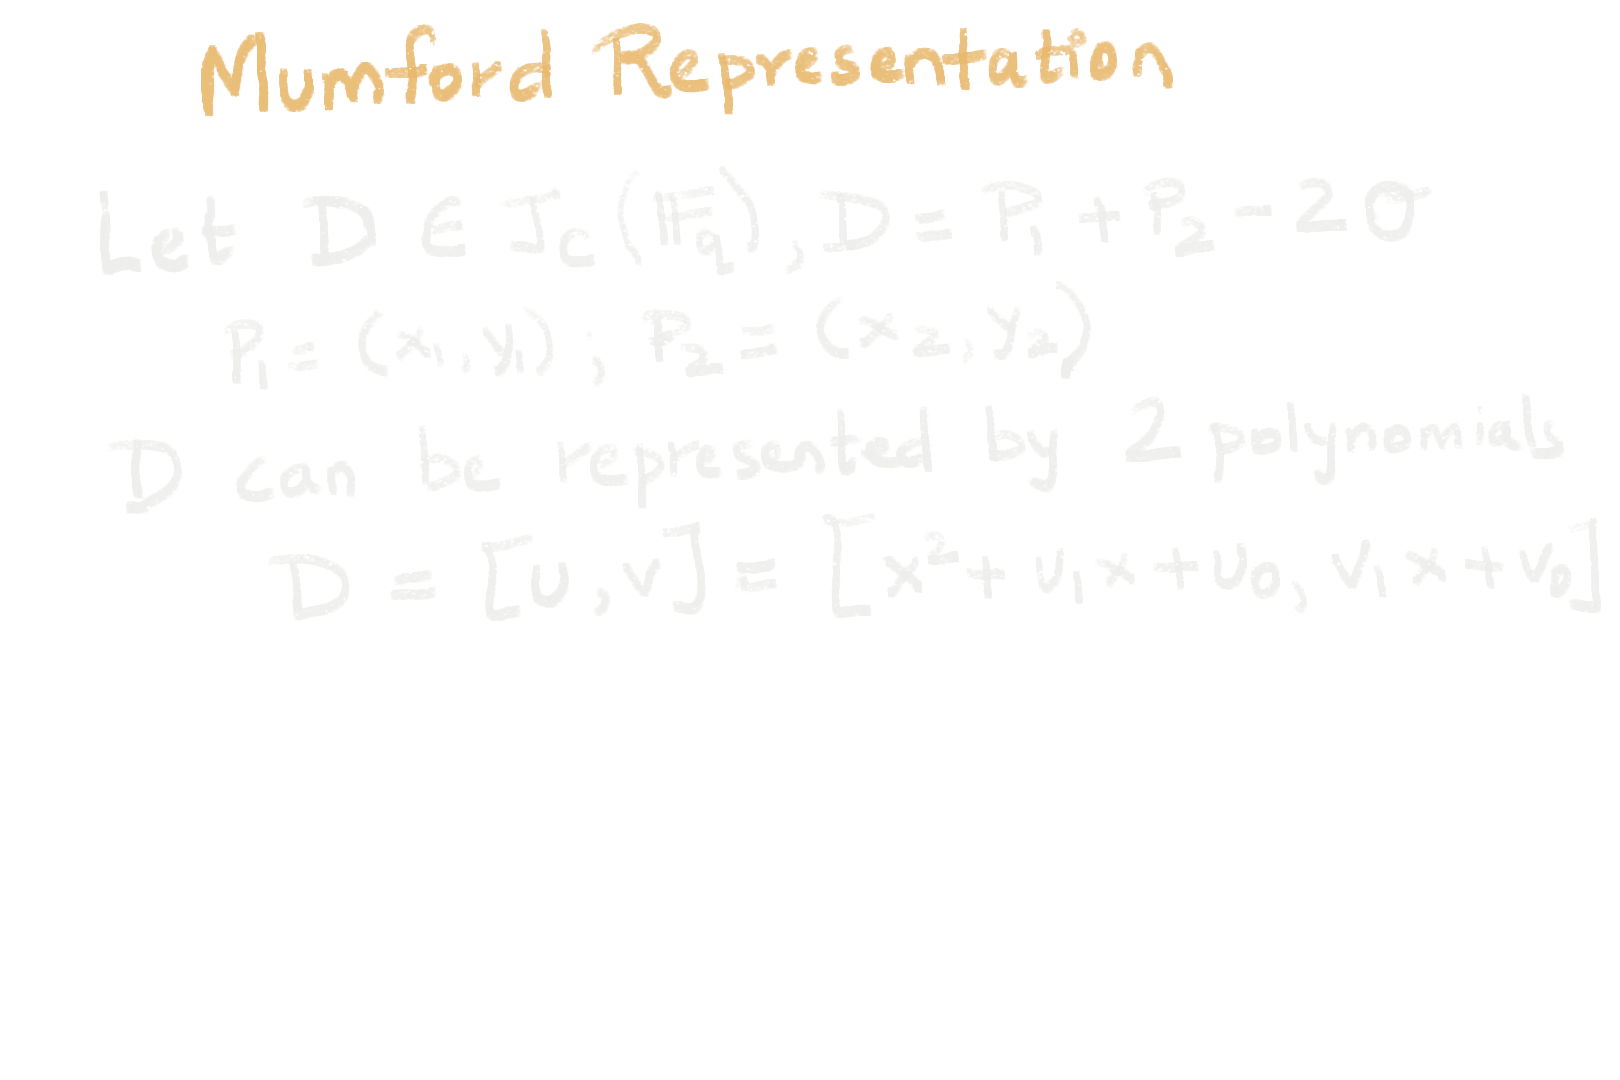 Mumford Representation
Let D ∈ J_C(𝔽_q), D = P₁ + P₂ - 2O
P₁ = (x₁, y₁); P₂ = (x₂, y₂)
D can be represented by 2 polynomials
D = [u, v] = [x² + u₁x + u₀, v₁x + v₀]